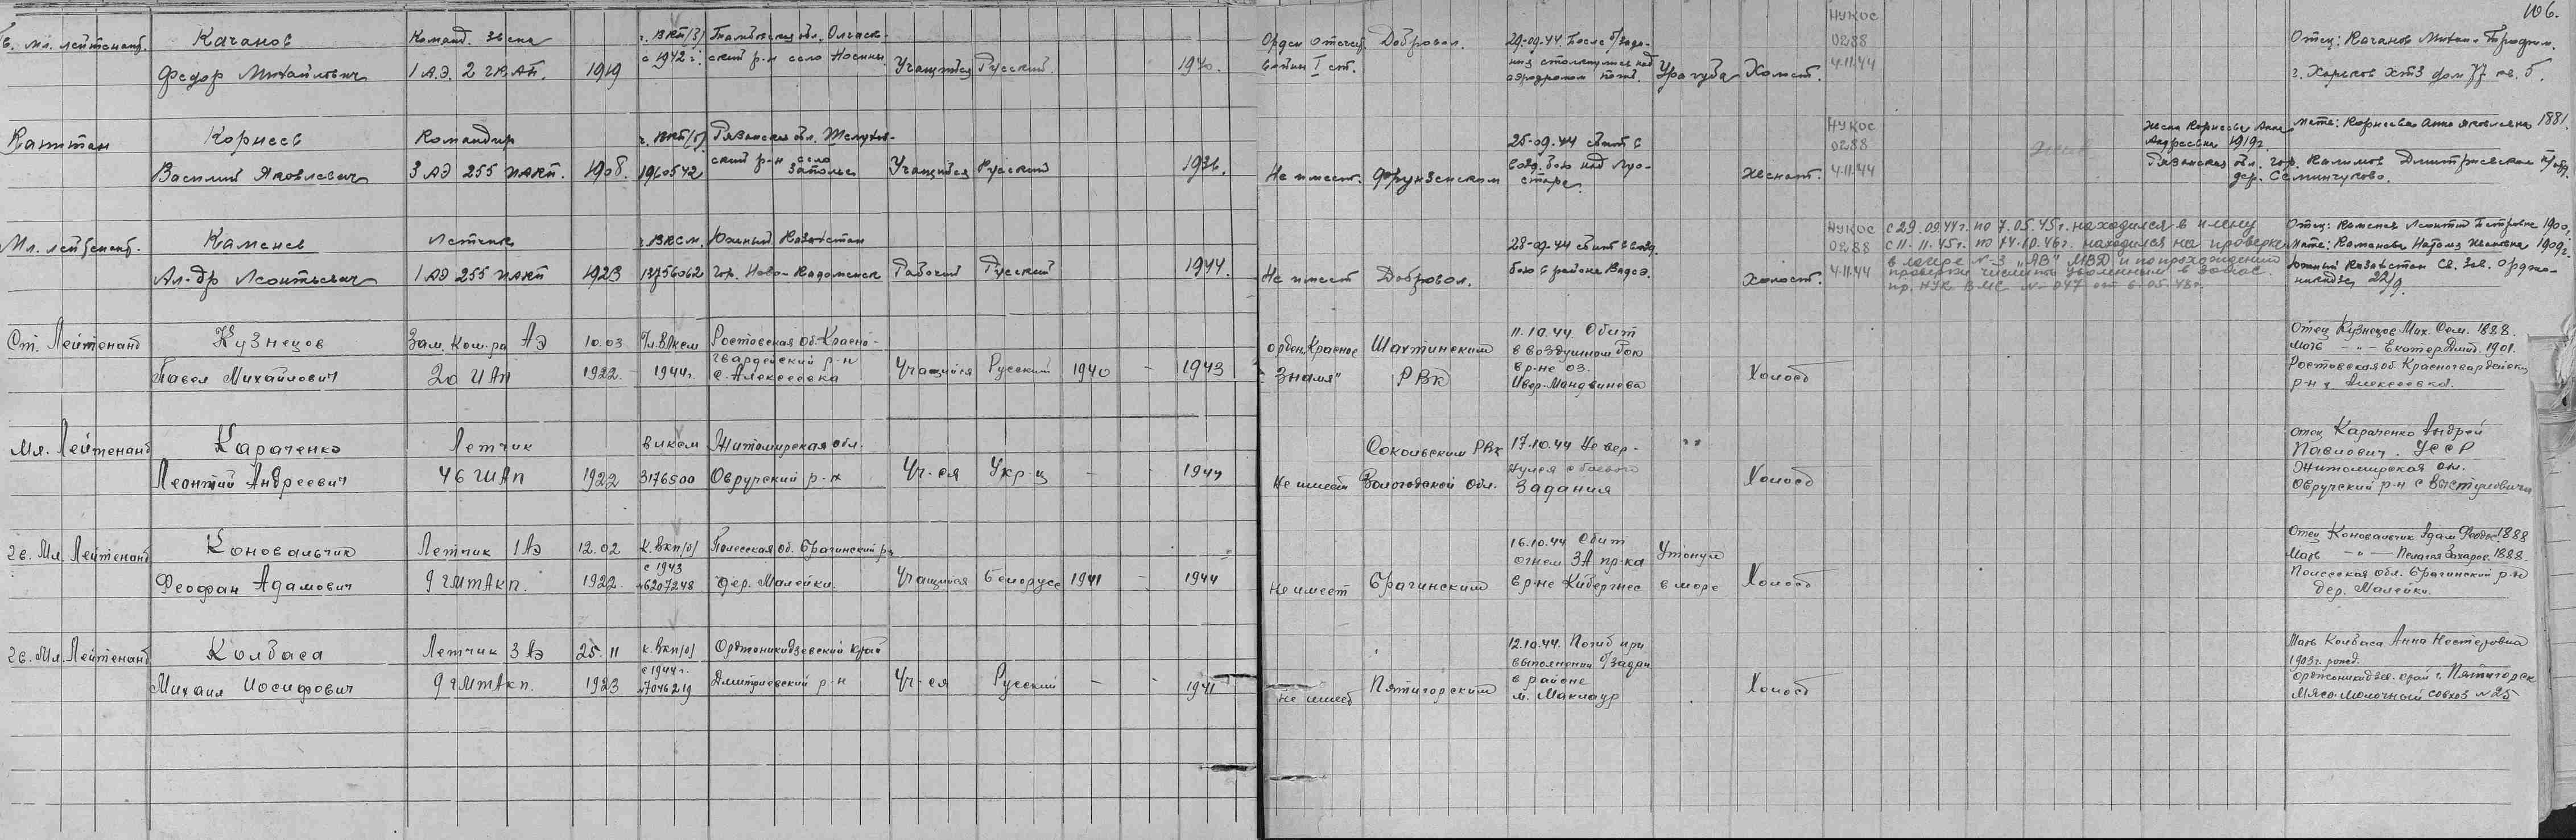 106.
Гв. мл. лейтенант. Качанов Команд. звена ч. ВКП/б/ Тамбовская обл. Ольхов-
с 1942 г. ский р-н село Носины
Федор Михайлович 1 А.Э. 2 ГКАП. 1919 Учащийся Русский 1940.
Орден Отечеств. Доброволь. 29-09-44. После б/зада-
войны I ст. ния столкнулись над
аэродромом погиб. Ура губа Холост.
НУКОС
0288
4.11.44
Отец: Качанов Михаил Трофим.
г. Харьков ХТЗ дом 77 кв. 5.
Капитан Корнеев Командир ч. ВКП/б/ Рязанская обл. Шелухов-
ский р-н село
Василий Яковлевич 3 АЭ 255 ИАКП. 1908. 1960542 Заполье Учащийся Русский 1936.
Не имеет. Фрунзенским
25-09-44 сбит в
возд. бою над
Женат.
НУКОС
0288
4.11.44
Жена Корнеева Анна
Андреевна 1919г.
Мать: Корнеева Анна Яковлевна 1881.
Рязанская обл. гор. Касимов Дмитриевская
дер. Семинчуково.
Мл. лейтенант. Каменев Летчик ч. ВЛКСМ. Южный Казахстан
Ал-др Леонтьевич 1 АЭ 255 ИАКП 1923 13756062 Рабочий Русский 1944.
Не имеет Доброволь.
28-09-44 сбит в возд.
бою в районе Вадсэ.
Холост.
НУКОС
0288
4.11.44
с 29.09.44г. по 7.05.45г. находился в плену
с 11.11.45г. по 14.10.46г. находился на проверке
в лагере №-3 „АВ" МВД и по прохождении
проверки числить уволенным в запас.
пр. НУК ВМС №-047 от 6.05.48г.
Отец: Каменев Леонтий Петрович 1900,
Мать: Каменева Наталья Ивановна 1909г.
Южный Казахстан Св. Зав. Орджо-
никидзе, 22/9.
Ст. Лейтенант Кузнецов Зам. Ком-ра АЭ 10.03 Чл. ВЛКСМ Ростовская об. Красно-
гвардейский р-н
Павел Михайлович 20 ИАП 1922 1944г. с. Алексеевка Учащийся Русский 1940 - 1943
орден „Красное Шахтинским
Знамя" РВК
11.10.44. Сбит
в воздушном бою
в р-не оз.
Холост
Отец Кузнецов Мих. Сем. 1888.
Мать -"- Екатер. Дмит. 1901.
Ростовская об. Красногвардейск.
р-н с. Алексеевка.
Мл. Лейтенант Караченко Летчик ВЛКСМ Житомирская обл.
Леонтий Андреевич 46 ШАП 1922 3176500 Овручский р-н Уч-ся Укр-ц - - 1944
Соколвским РВК
Не имеет Вологодской обл.
17.10.44 Не вер-
нулся с боевого
задания
" "
Холост
Отец Караченко Андрей
Павлович. УССР
Житомирская ол.
Овручский р-н с Выступовичи
Гв. Мл. Лейтенант Коновальчик Летчик 1 АЭ 12.02 К. ВКП/б/ Полесская об. Брагинский р-н
с 1943
Феофан Адамович 9 ГМТАКП. 1922. №6207248 дер. Малейки. Учащийся Белорусс 1941 - 1944
Не имеет Брагинским
16.10.44 Сбит
огнем ЗА пр-ка
в р-не Кибергнес
Утонул
в море
Холост
Отец Коновальчик Адам Федос 1888
Мать -"- Пелагея Захаров. 1888.
Полесская обл. Брагинский р-н
дер. Малейки.
Гв. Мл. Лейтенант Колбаса Летчик 3 АЭ 25.11 К. ВКП/б/ Орджоникидзевский край
с 1944г.
Михаил Иосифович 9 ГМТАКП. 1923 №7046219 Дмитриевский р-н Уч-ся Русский - - 1941
Не имеет Пятигорским
12.10.44. Погиб при
выполнении б/задан.
в районе
м. Маклаур
Холост
Мать Колбаса Анна Нестеровна
1903г. рожд.
Орджоникидзев. край г. Пятигорск
Мясо-молочный совхоз №25